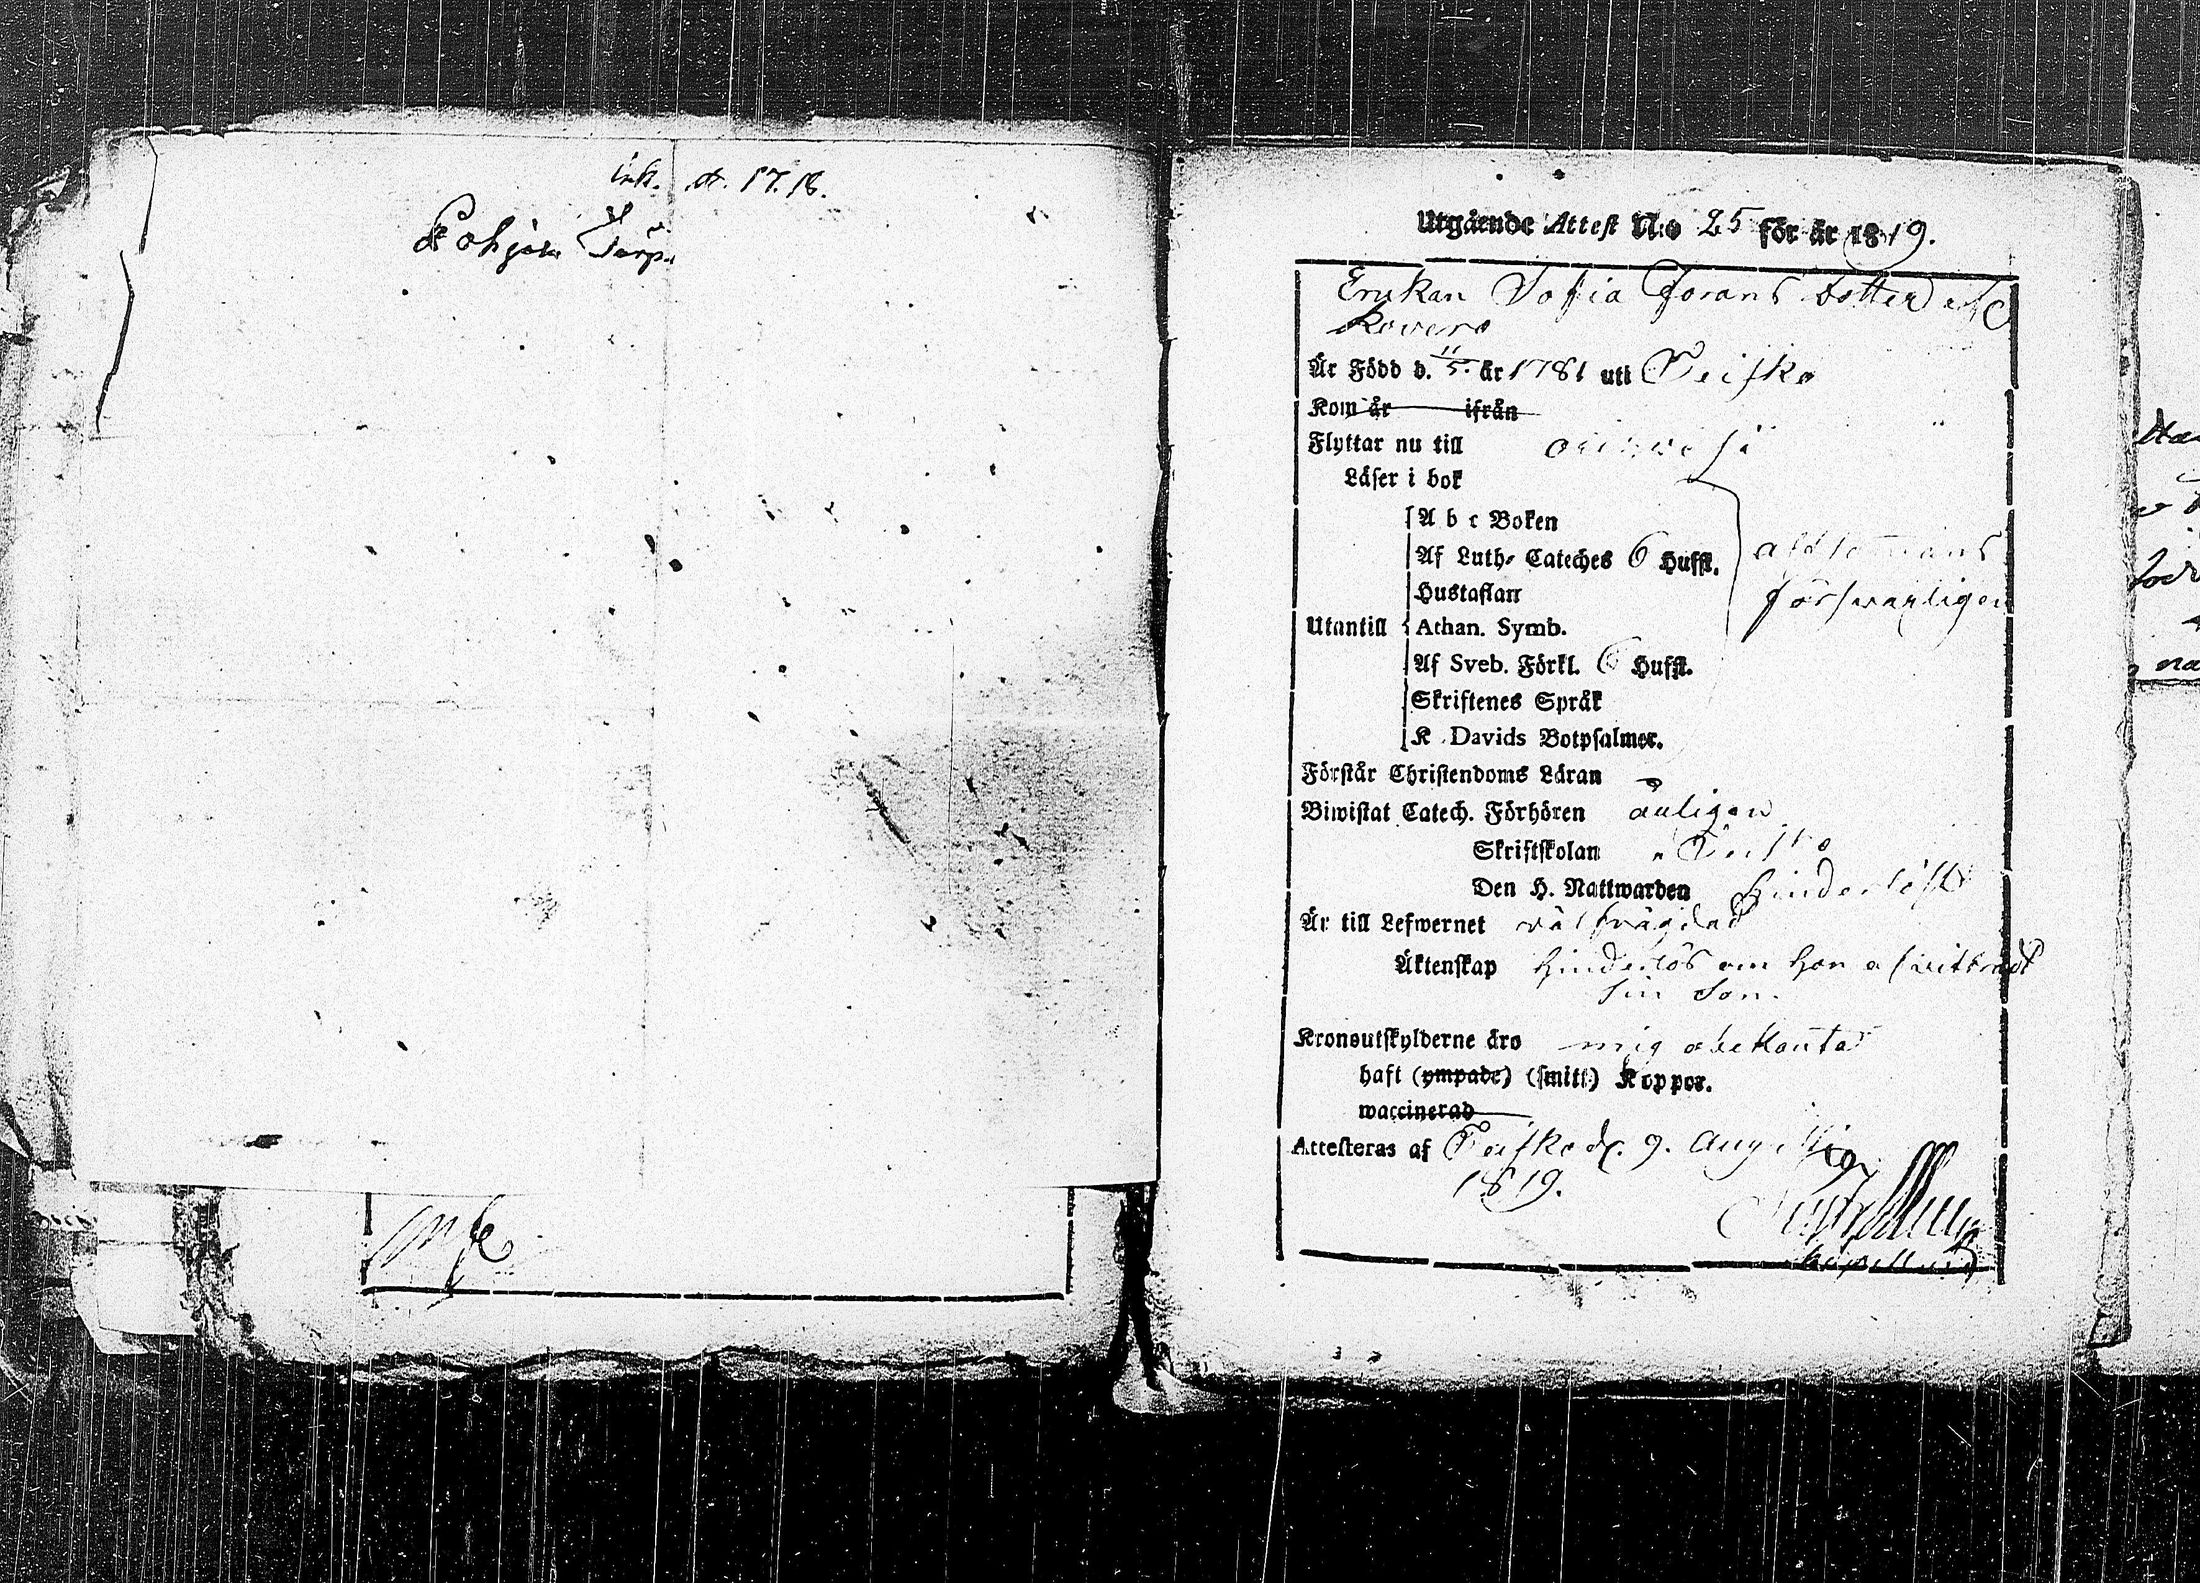 ink. d. 17. 18.
Pohjan Torp.
Utgående Attest N:o 25 för år 1819.
Enkan Sofia Jorans dotter
Kovero
Är Född d. 11/5. år 1781 uti Teisko
Kom år ifrån
Flyttar nu till Orihvesi
Läser i bok
A b c Boken
Af Luth. Cateches 6 Hufst.
Hustaflan
försvarligen
Utantill Athan. Symb.
Af Sveb. Förkl. 6 Hufst.
Skriftenes Språk
K Davids Botpsalmer.
Förstår Christendoms Läran
Biwistat Catech. Förhören årligen
Skriftskolan Teisko
Den H. Nattwarden hinderlöst
Är till Lefwernet välfrägdad
Äktenskap hinderlös om hon afvittradt
sin Son.
Kronoutskylderne äro mig obekanta
haft (ympade) (smitt) Koppor.
waccinerad
Attesteras af Teisko d. 9. Augusti
1819.